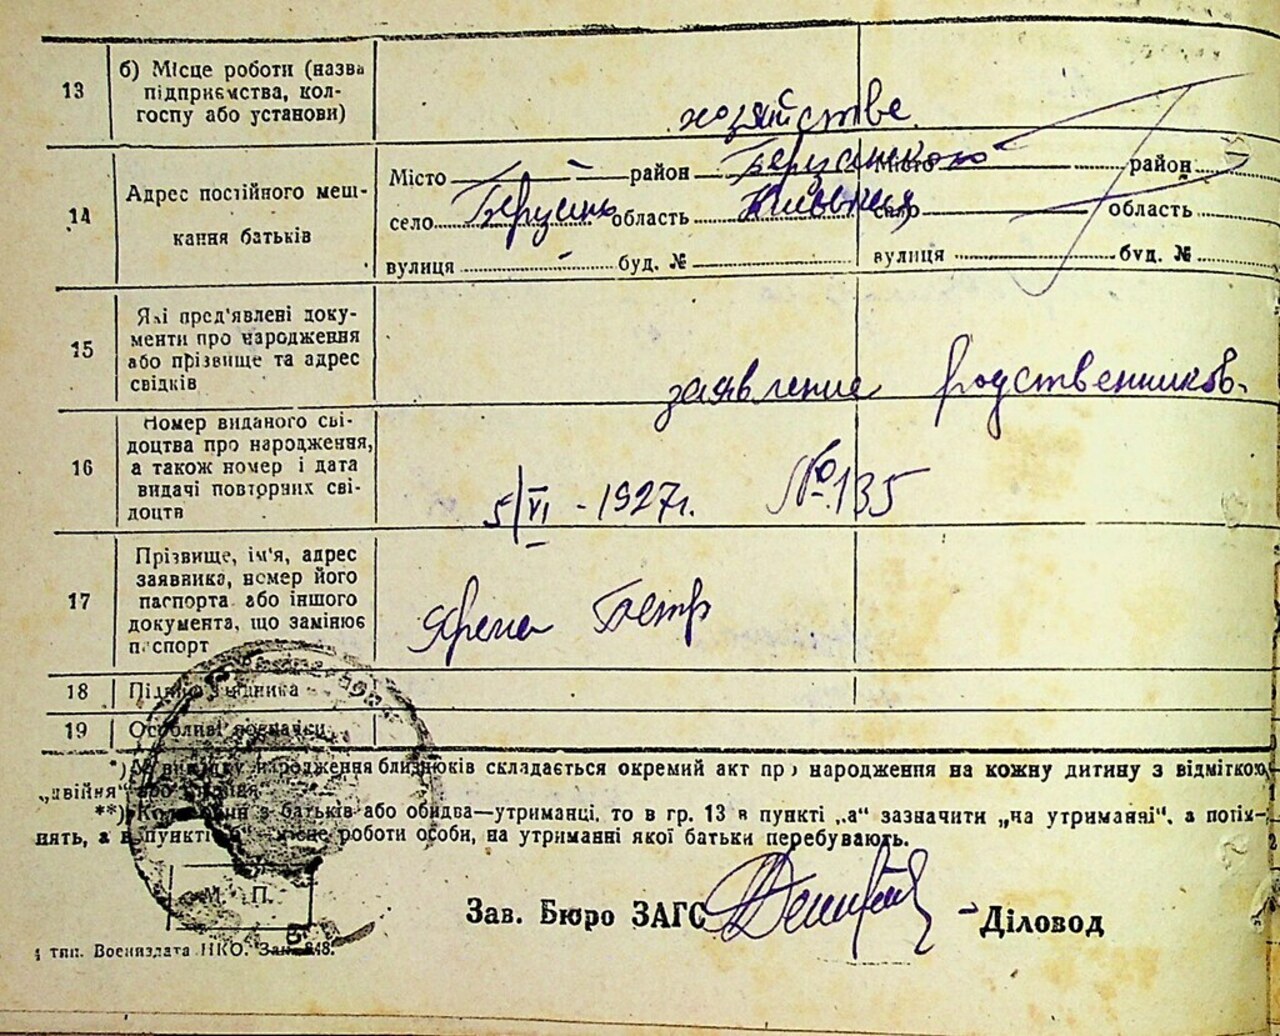 13
б) Місце роботи (назва
підприємства, кол-
госпу або установи)
хозяйстве
14
Адрес постійного меш-
кання батьків
Місто район Місто район
село область Київська село область
вулиця буд. № вулиця буд. №
15
Які пред'явлені доку-
менти про народження
або прізвище та адрес
свідків
заявление родственников.
16
Номер виданого сві-
доцтва про народження,
а також номер і дата
видачі повторних сві-
доцтв
5/VI - 1927г. №135
17
Прізвище, ім'я, адрес
заявника, номер його
паспорта або іншого
документа, що замінює
паспорт
Ярема Петр
18
Підпис заявника
19
Особливі позначки
*) У випадку народження близнюків складається окремий акт про народження на кожну дитину з відміткою
„двійня“ або
**) Коли один з батьків або обидва—утриманці, то в гр. 13 в пункті „а“ зазначити „на утриманні“, а потім
нять, а в пункті „б“—місце роботи особи, на утриманні якої батьки перебувають.
М. П.
Зав. Бюро ЗАГС - Діловод
4 тип. Воениздата НКО. Зак. 848.